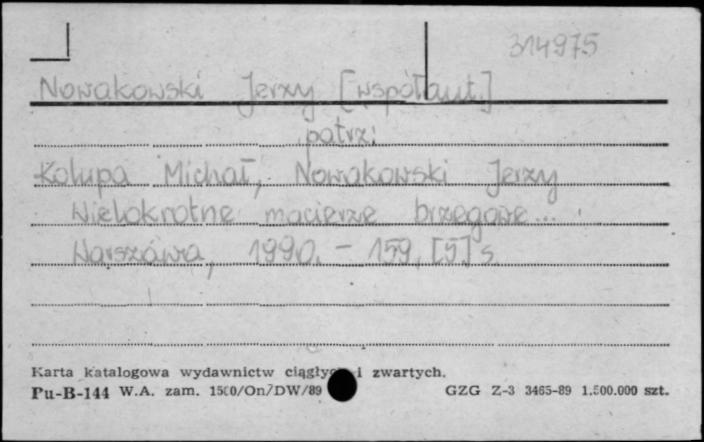 314975
Nowakowski Jerzy [współaut.]
patrz:
Kolupa Michał, Nowakowski Jerzy
Wielokrotne macierze brzegowe...
Warszawa, 1990. - 159, [5] s.
Karta katalogowa wydawnictw ciągłych i zwartych.
Pu-B-144 W.A. zam. 1500/On/DW/89 GZG Z-3 3465-89 1.500.000 szt.